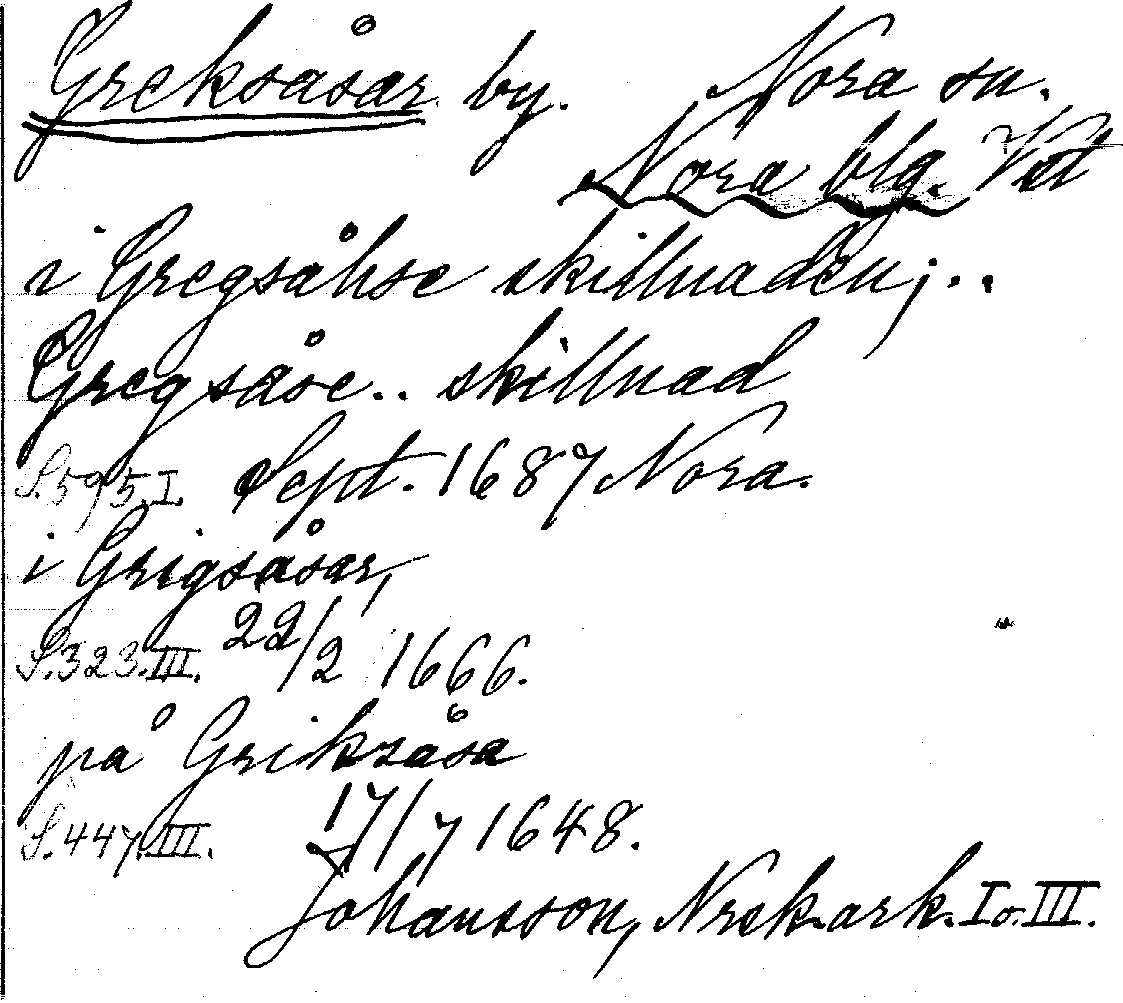 Greksåsar by. Nora sn.
Nora blg. Vst
i Gregsåhse skillnaden;..
Gregsåse.. skillnad
S.595.I. Sept. 1687 Nora.
i Grigsåsar,
S.323.III. 22/2 1666.
på Griksåsa
S.447.III. 17/7 1648.
Johansson, Nrsk.ark. I o. III.